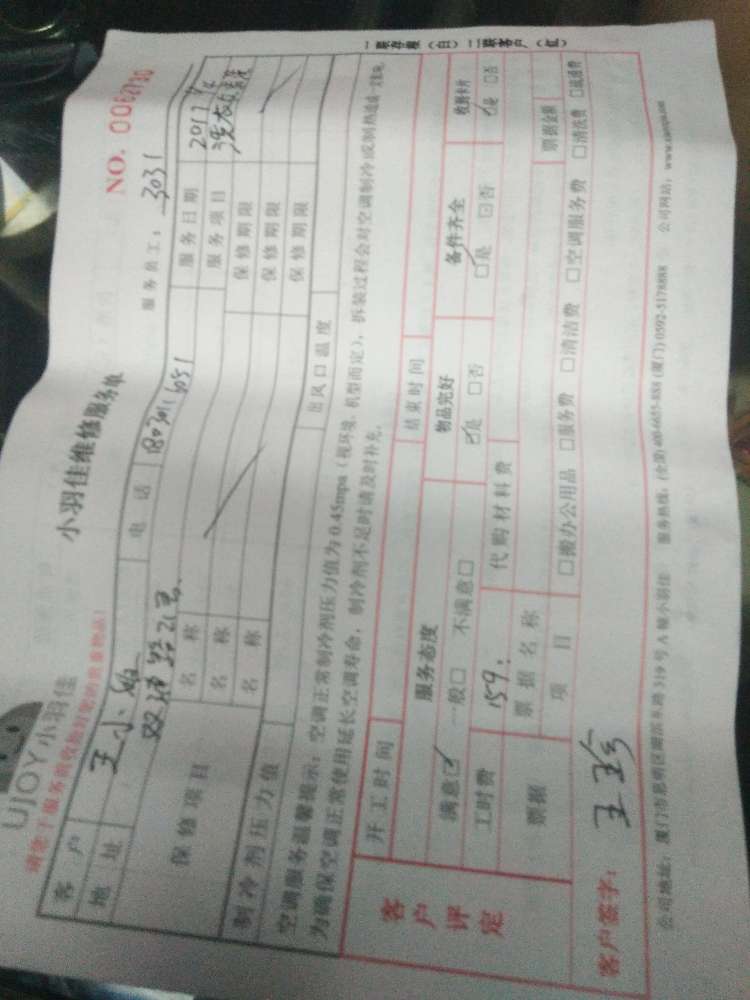 UJOY小羽佳
小羽佳维修服务单
NO. 0062730
服务员工： 3031
客户 王小姐 电话
服务日期 2017
地址 双涵路
服务项目 洗衣机清洗
保修项目
名称 保修期限
名称 保修期限
名称 保修期限
制冷剂压力值 出风口温度
空调服务温馨提示：空调正常制冷剂压力值为0.45mpa（视环境、机型而定），拆装过程会对空调制冷或制热造成一定影响，
为确保空调正常使用延长空调寿命，制冷剂不足时请及时补充。
客户评定
开工时间 结束时间
服务态度 物品完好 备件齐全 收到卡片
满意☑ 一般□ 不满意□ ☑是 □否 ☑是 □否 ☑是 □否
工时费 159. 代购材料费
票据 票据名称 票据金额
项目 □搬办公用品 □服务费 □清洁费 □空调服务费 □清洗费 □疏通费
客户签字： 王珍
公司地址：厦门市思明区湖滨东路319号A幢小羽佳 服务热线：(全国)400-6655-888 (厦门)0592-5178888 公司网站：www.xiaoyu.com
一联存根（白） 二联客户（红）